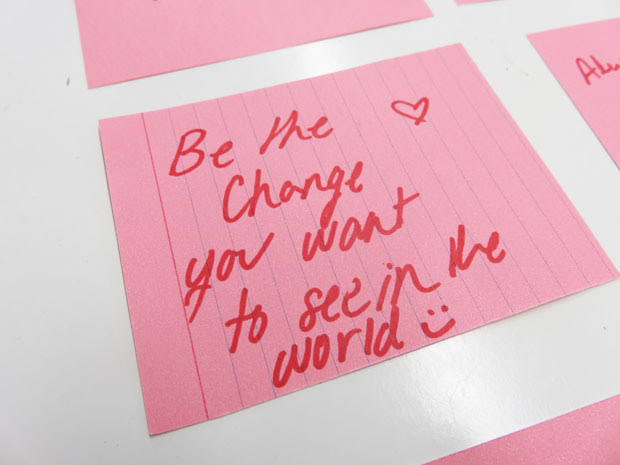 Be the
Change
you want
to see in the
world :)